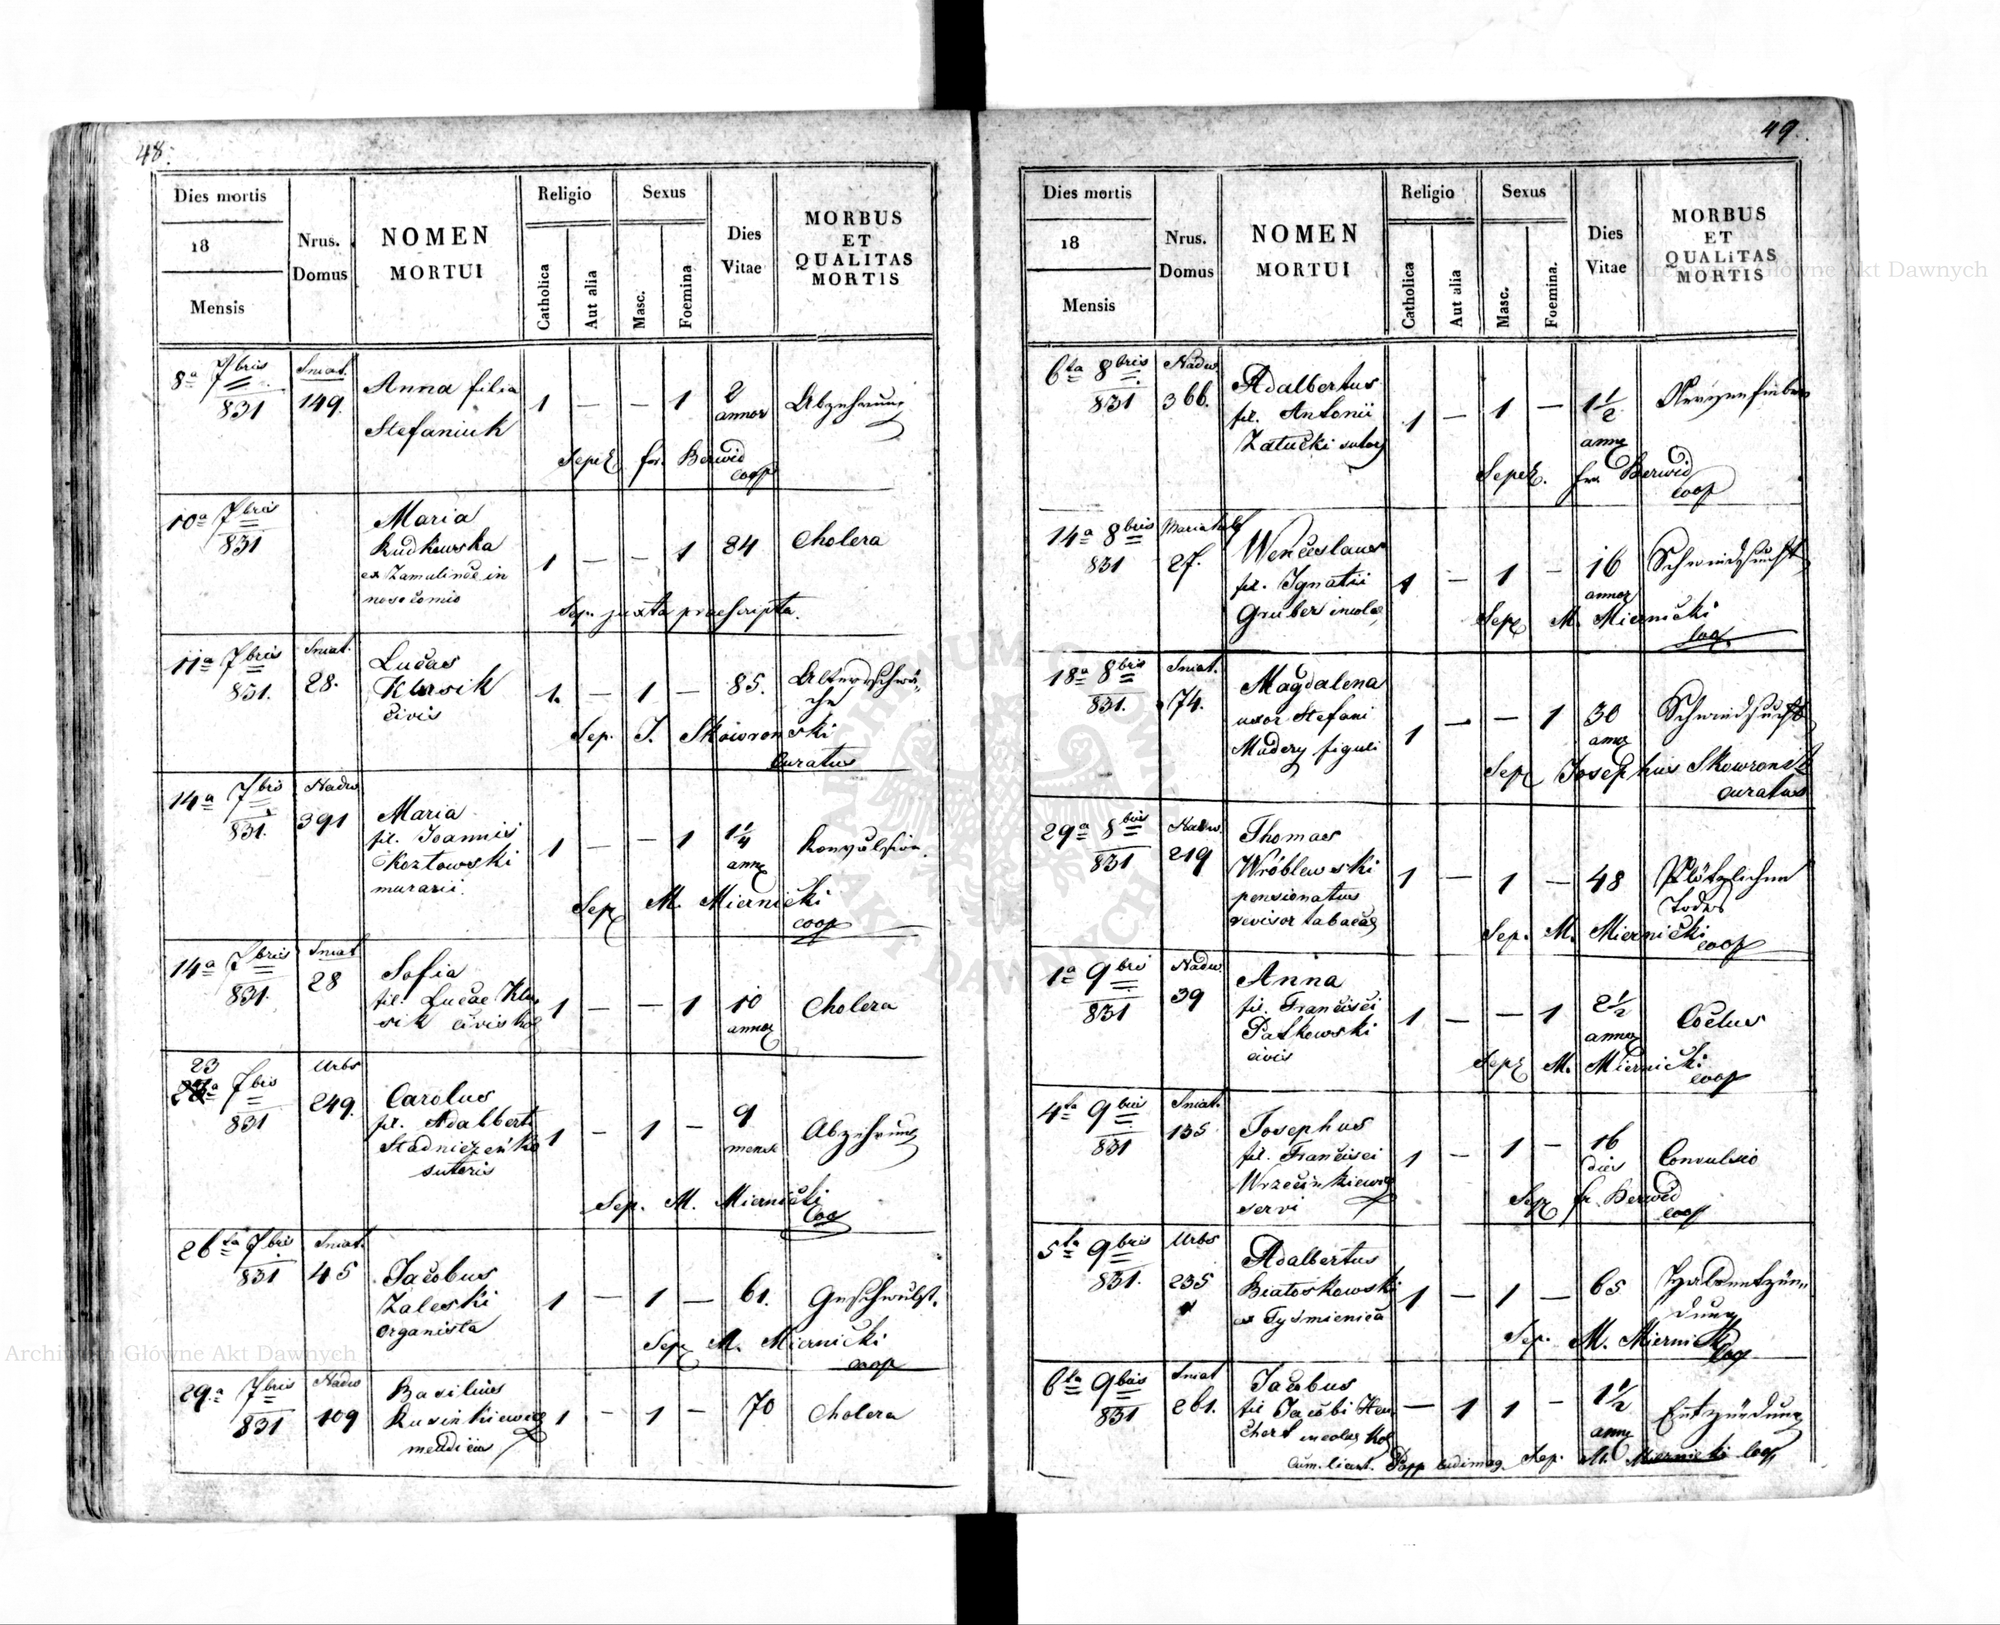 48.
Dies mortis
18
Mensis
Nrus.
Domus
NOMEN
MORTUI
Religio
Catholica
Aut alia
Sexus
Masc.
Foemina
Dies
Vitae
MORBUS
ET
QUALITAS
MORTIS
8a 7bris
831
Sniat.
149.
Anna filia
Stefaniuk
1 — — 1
2
annor
Abzehrung
Sepel fr. Berwid
coop
10a 7bris
831
Maria
Rudkowska
ex Zamulince in
nosocomio
1 — — 1
84
Cholera
Sep. juxta praescripta.
11a 7bris
831.
Sniat.
28.
Lucas
Klusik
civis
1. — 1 —
85.
Altersschwä-
che
Sep. J. Skowronski
Curatus
14a 7bris
831.
Nadw
391
Maria
fil. Joannis
Kozłowski
murarii.
1 — — 1
1 1/4
anni
Konvulsion.
Sep M. Miernicki
coop
14a 7bris
831.
Sniat
28
Sofia
fil. Lucae Klu-
sik civis
1 — — 1
10
annor
Cholera
23
7bris
831
Urbs
249.
Carolus
fil. Adalberti
sutoris
1 — 1 —
9
mens
Abzehrung
Sep. M. Miernicki
Coo
26ta 7bris
831
Sniat.
45
Jacobus
Zaleski
organista
1 — 1 —
61.
Geschwulst.
Sep M. Miernicki
coop
29.a 7bris
831
Nadw
109
Basilius
mendicus
1 — 1 —
70
Cholera
49.
Dies mortis
18
Mensis
Nrus.
Domus
NOMEN
MORTUI
Religio
Catholica
Aut alia
Sexus
Masc.
Foemina.
Dies
Vitae
MORBUS
ET
QUALITAS
MORTIS
6ta 8bris
831
Nadw.
366.
Adalbertus
fil. Antonii
Załucki sutor
1 — 1 —
1 1/2
anni
Nervenfieber
Sepel. fr. Berwid
coop
14a 8bris
831
Mariahilf
27.
Wenceslaus
fil. Ignatii
Gruber incolae
1 — 1 —
16
annor
Schwindsucht
Sep M. Miernicki
Coo
18a 8bris
831.
Sniat.
74.
Magdalena
uxor Stefani
Madery figuli
1 — — 1
30
annor
Schwindsucht
Sep Josephus Skowronski
Curatus
29a 8bris
831
Nadw.
219
Thomas
Wróblewski
pensionatus
revisor tabacae
1 — 1 —
48
Plötzlichen
Todes
Sep. M. Miernicki
coop
1a 9bris
831
Nadw.
39
Anna
fil. Francisci
Patkowski
civis
1 — — 1
2 1/2
annor
Sep M. Miernicki
coop
4ta 9bris
831
Sniat.
135
Josephus
fil. Francisci
servi
1 — 1 —
16
dies
Convulsio
Sep fr Berwid
coop
5ta 9bris
831.
Urbs
235
Adalbertus
Białoskowski
ex Tyśmienica
1 — 1 —
65
Halsentzün-
dung
Sep. M. Miernicki
Coop
6ta 9bris
831
Sniat
261.
Jacobus
fil Jacobi
— 1 1 —
1 1/2
anni
Entzündung
Cum. licent. Popp ludimag. Sep. M. Miernicki Coop
Archiwum Główne Akt Dawnych
Archiwum Główne Akt Dawnych
ARCHIWUM GŁÓWNE AKT DAWNYCH